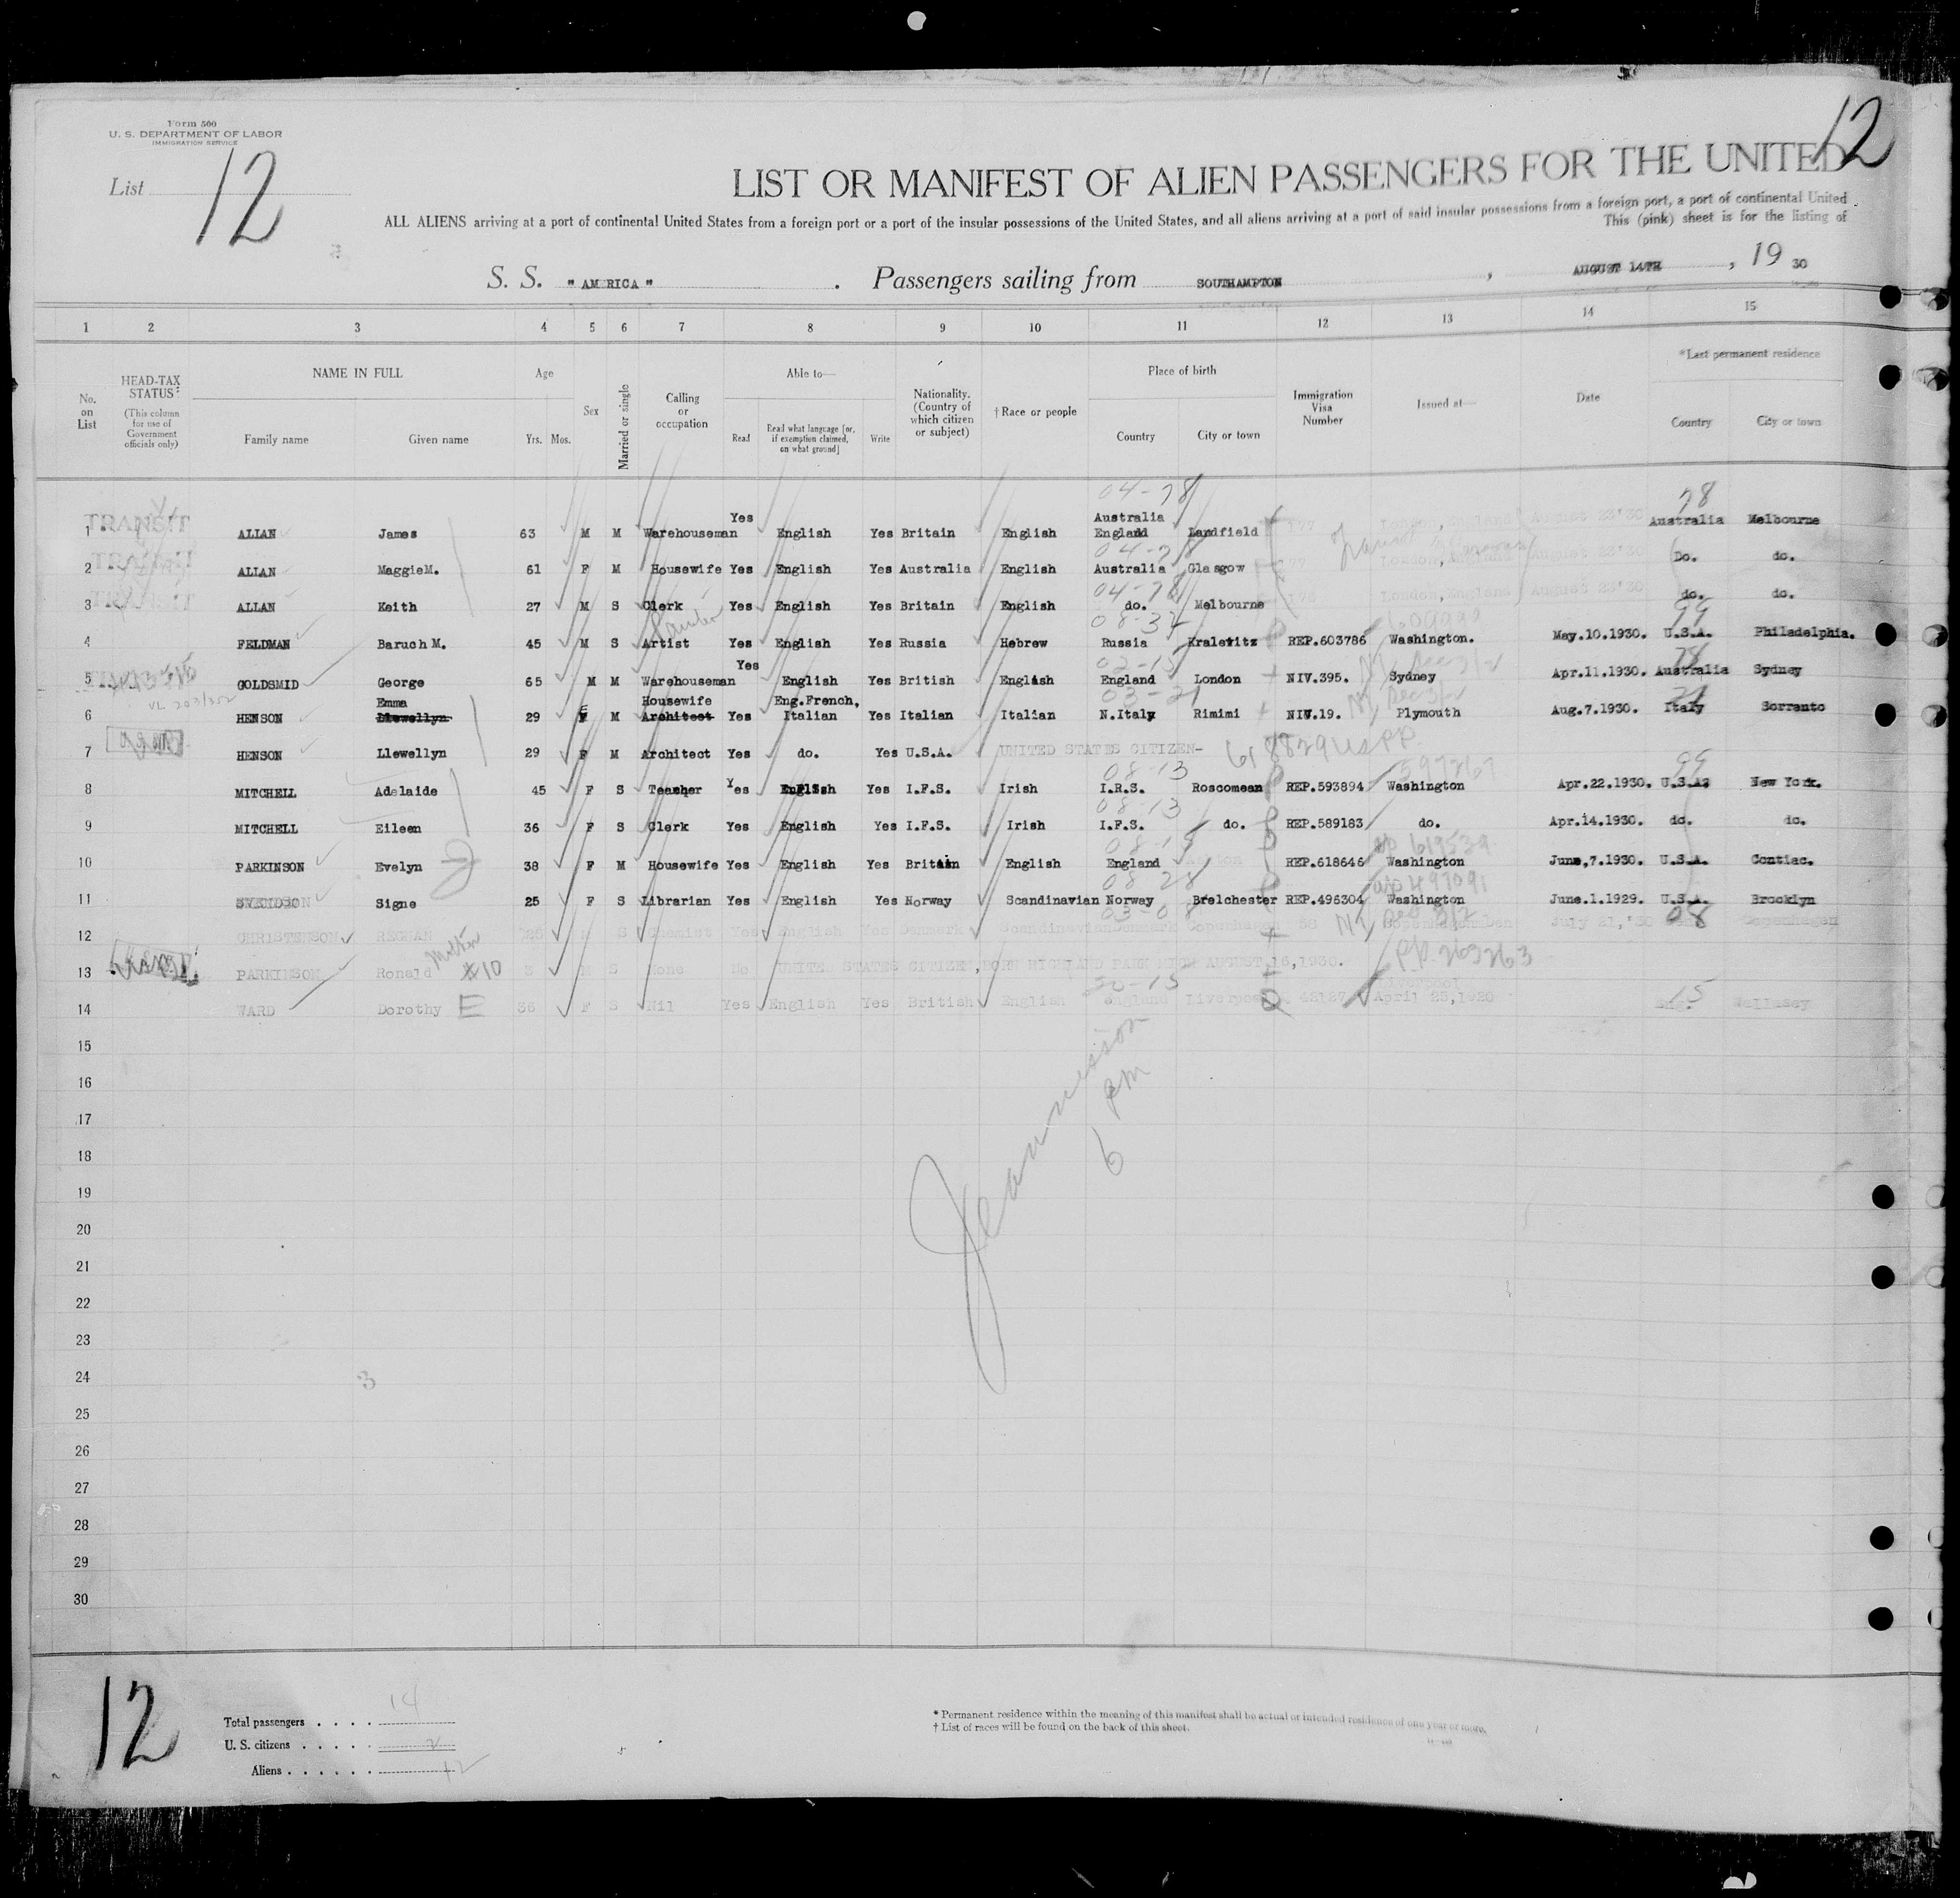 Form 500
U. S. DEPARTMENT OF LABOR
IMMIGRATION SERVICE
List 12
12
LIST OR MANIFEST OF ALIEN PASSENGERS FOR THE UNITED
ALL ALIENS arriving at a port of continental United States from a foreign port or a port of the insular possessions of the United States, and all aliens arriving at a port of said insular possessions from a foreign port, a port of continental United
This (pink) sheet is for the listing of
S. S. "AMERICA". Passengers sailing from SOUTHAMPTON, AUGUST 14TH, 19 30
1 2 3 4 5 6 7 8 9 10 11 12 13 14 15
No. on List
HEAD-TAX STATUS
(This column for use of Government officials only)
NAME IN FULL
Family name Given name
Age
Yrs. Mos.
Sex
Married or single
Calling or occupation
Able to—
Read
Read what language [or, if exemption claimed, on what ground]
Write
Nationality. (Country of which citizen or subject)
†Race or people
Place of birth
Country City or town
Immigration Visa Number
Issued at—
Date
*Last permanent residence
Country City or town
04-78 78
Yes Australia
1 TRANSIT ALLAN James 63 M M Warehouseman English Yes Britain English England Landfield 177 London, England August 23'30 Australia Melbourne
04-78
2 TRANSIT ALLAN MaggieM. 61 F M Housewife Yes English Yes Australia English Australia Glasgow 77 London, England August 23'30 Do. do.
04-78
3 TRANSIT ALLAN Keith 27 M S Clerk Yes English Yes Britain English do. Melbourne 178 London, England August 23'30 do. do.
99
4 FELDMAN Baruch M. 45 M S Artist Yes English Yes Russia Hebrew Russia Kralevitz REP.603786 Washington. May.10.1930. U.S.A. Philadelphia.
Yes 03-15 78
5 GOLDSMID George 65 M M Warehouseman English Yes British English England London NIV.395. Sydney Apr.11.1930. Australia Sydney
Emma Housewife Eng.French, 03-21
6 HENSON Llewellyn 29 F M Architect Yes Italian Yes Italian Italian N.Italy Rimimi NIV.19. Plymouth Aug.7.1930. Italy Sorrento
7 HENSON Llewellyn 29 F M Architect Yes do. Yes U.S.A. UNITED STATES CITIZEN- 618829 US PP
08-13 597267 99
8 MITCHELL Adelaide 45 F S Teacher Yes English Yes I.F.S. Irish I.R.S. Roscomean REP.593894 Washington Apr.22.1930. U.S.A. New York.
08-13
9 MITCHELL Eileen 36 F S Clerk Yes English Yes I.F.S. Irish I.F.S. do. REP.589183 do. Apr.14.1930. do. do.
08-15 619539
10 PARKINSON Evelyn 38 F M Housewife Yes English Yes Britain English England REP.618646 Washington June,7.1930. U.S.A. Contiac.
08-28 497091
11 Signe 25 F S Librarian Yes English Yes Norway Scandinavian Norway Brelchester REP.496304 Washington June.1.1929. U.S.A. Brooklyn
03-08 08
12 CHRISTENSON REGNAR 25 M S Chemist Yes English Yes Denmark Scandinavian Denmark Copenhagen Copenhagen July 21,'30 Copenhagen
13 PARKINSON Ronald #10 M S None No UNITED STATES CITIZEN, BORN HIGHLAND PARK MICH AUGUST 16,1930. PP. 263263
15
14 WARD Dorothy E 36 F S Nil Yes English Yes British English England Liverpool 42127 April 25,1930 Eng. Wallasey
15
16
17
18
19
20
21
22
23
24
25
26
27
28
29
30
6 pm
3
12
Total passengers . . . . 14
U. S. citizens . . . . . 2
Aliens . . . . . . 12
* Permanent residence within the meaning of this manifest shall be actual or intended residence of one year or more.
† List of races will be found on the back of this sheet.